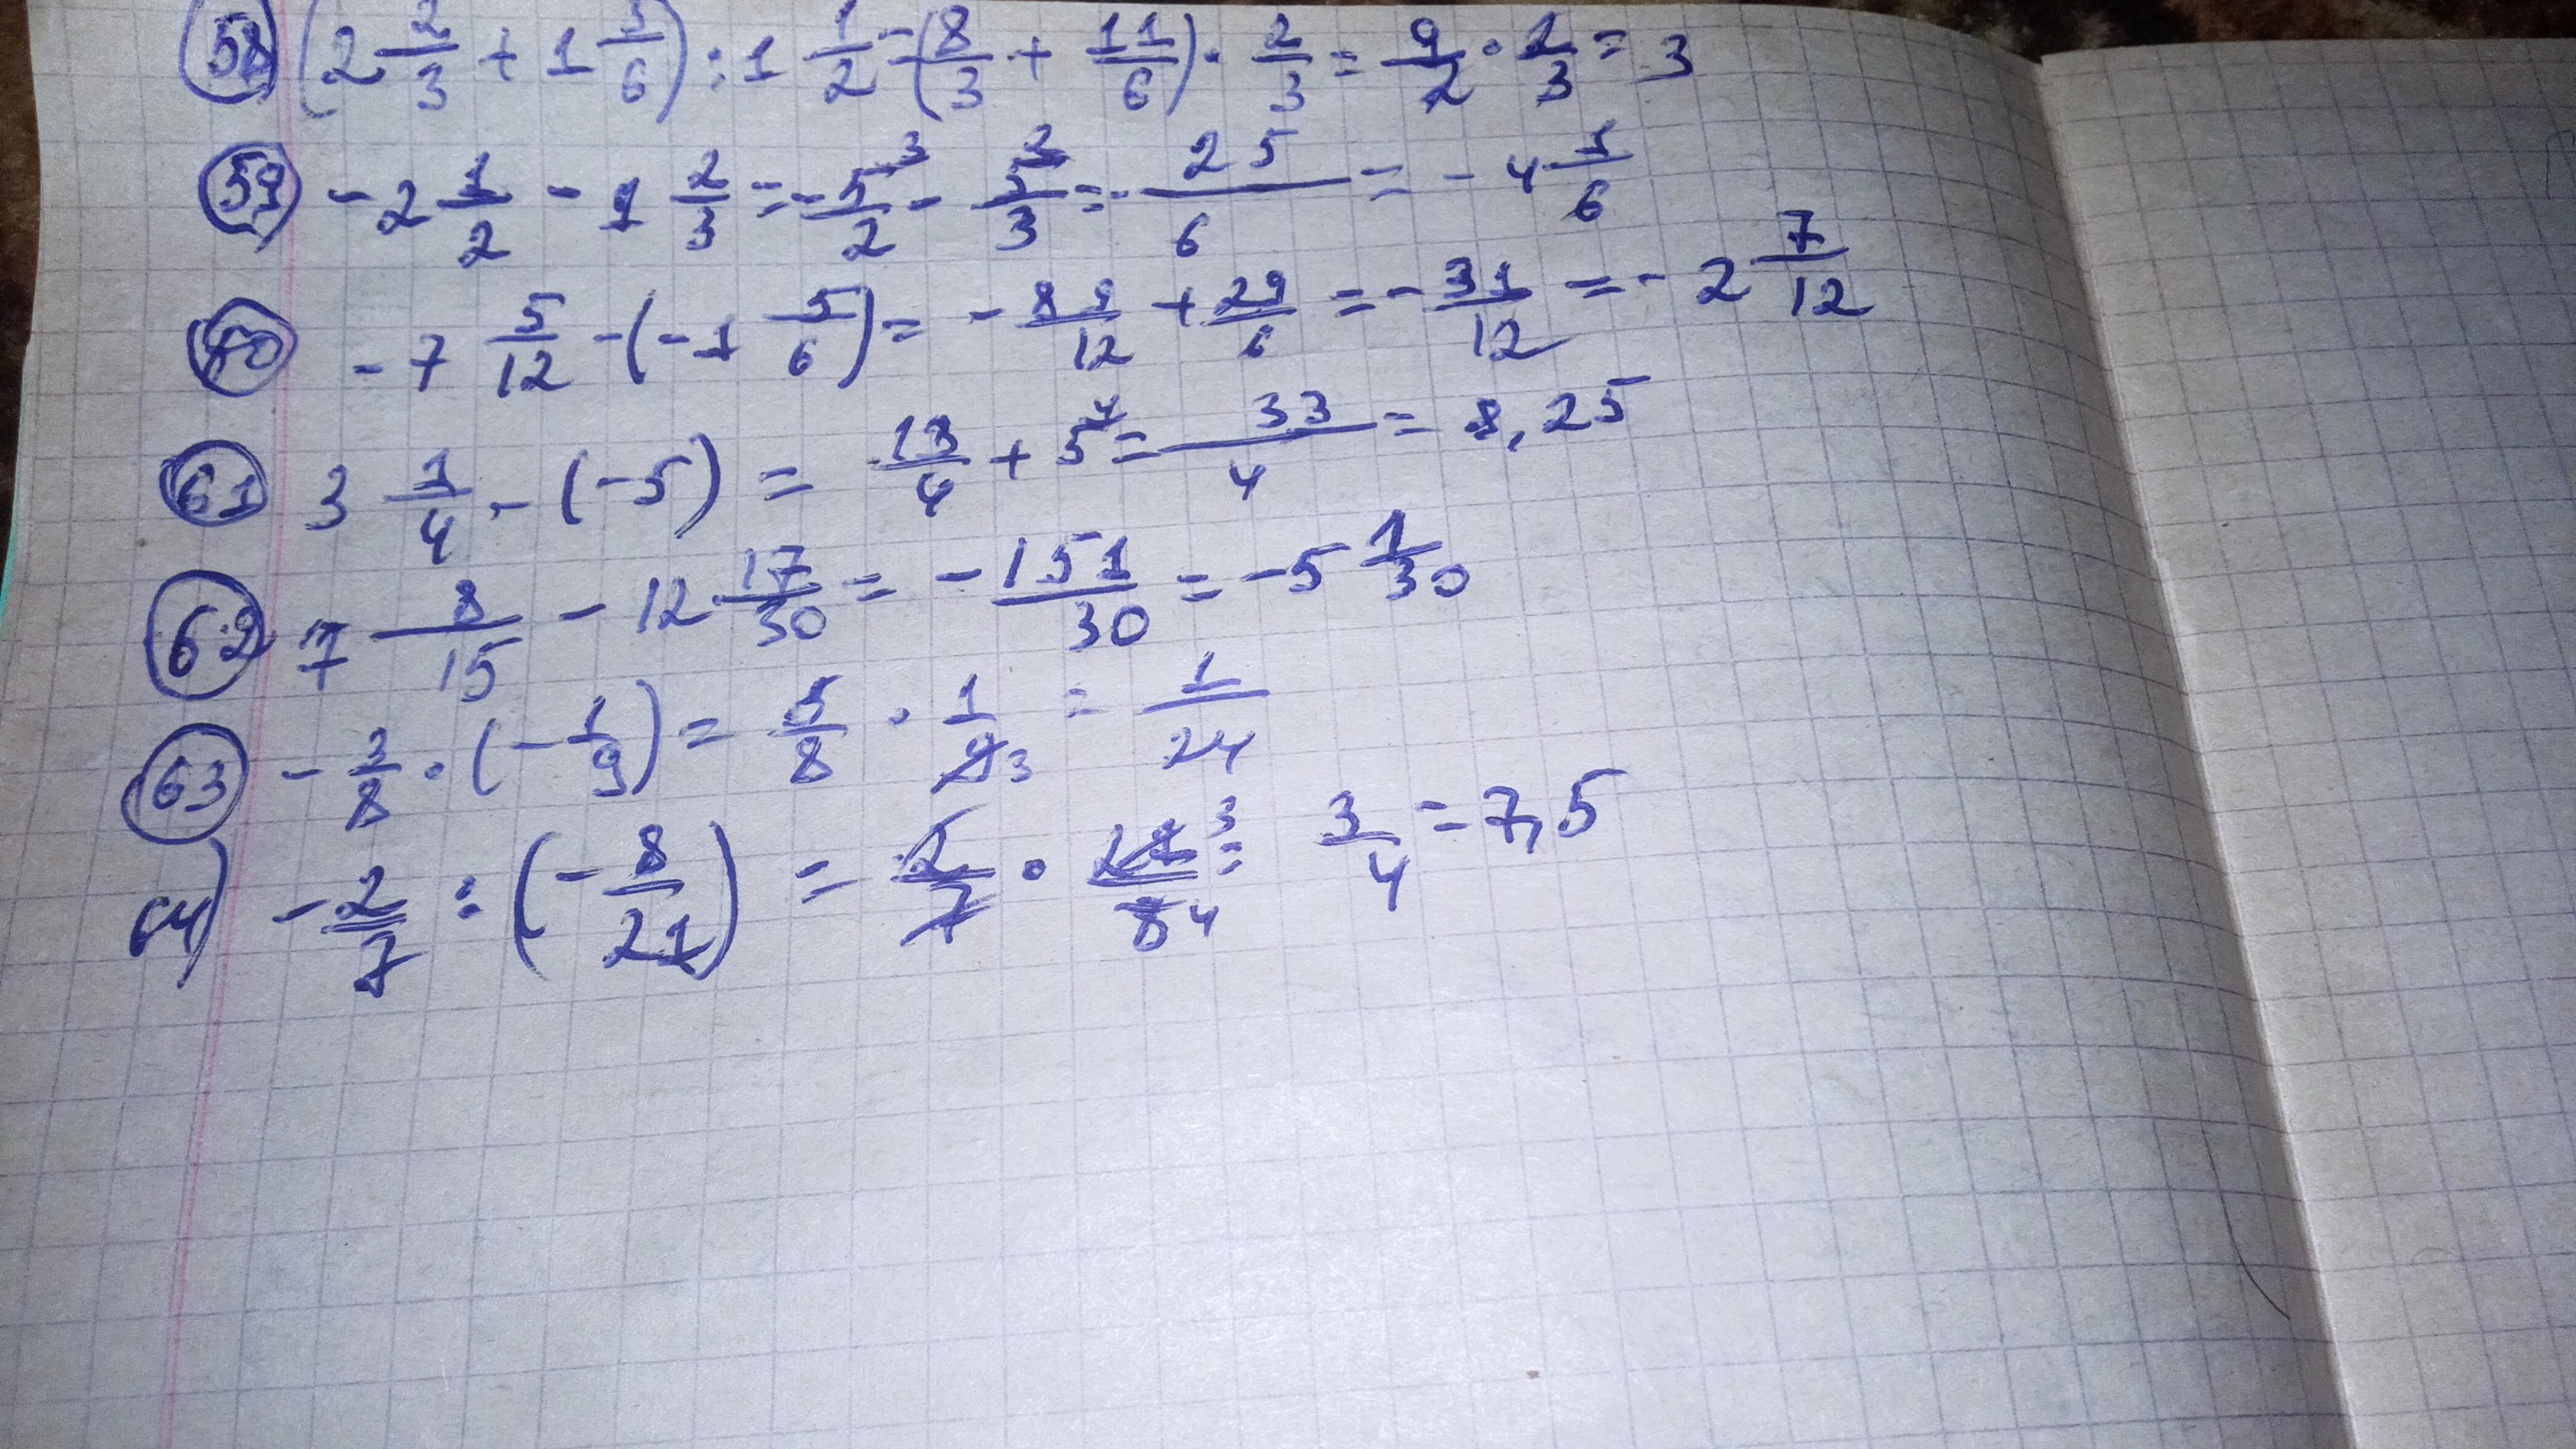 58 (2 2/3 + 1 5/6) : 1 1/2 = (8/3 + 11/6) · 2/3 = 9/2 · 2/3 = 3
59 - 2 1/2 - 1 2/3 = - 5/2 ³ - 5/3 ² = - 25/6 = - 4 1/6
60 - 7 5/12 - (-1 5/6) = - 89/12 + 29/6 = - 31/12 = - 2 7/12
61 3 1/4 - (-5) = 13/4 + 5 ⁴ = 33/4 = 8,25
62 7 8/15 - 12 17/30 = - 151/30 = -5 1/30
63 - 3/8 · (- 1/9) = 3/8 · 1/9 3 = 1/24
64) - 2/7 : (- 8/21) = 2/7 · 21/8 3 4 = 3/4 = 7,5